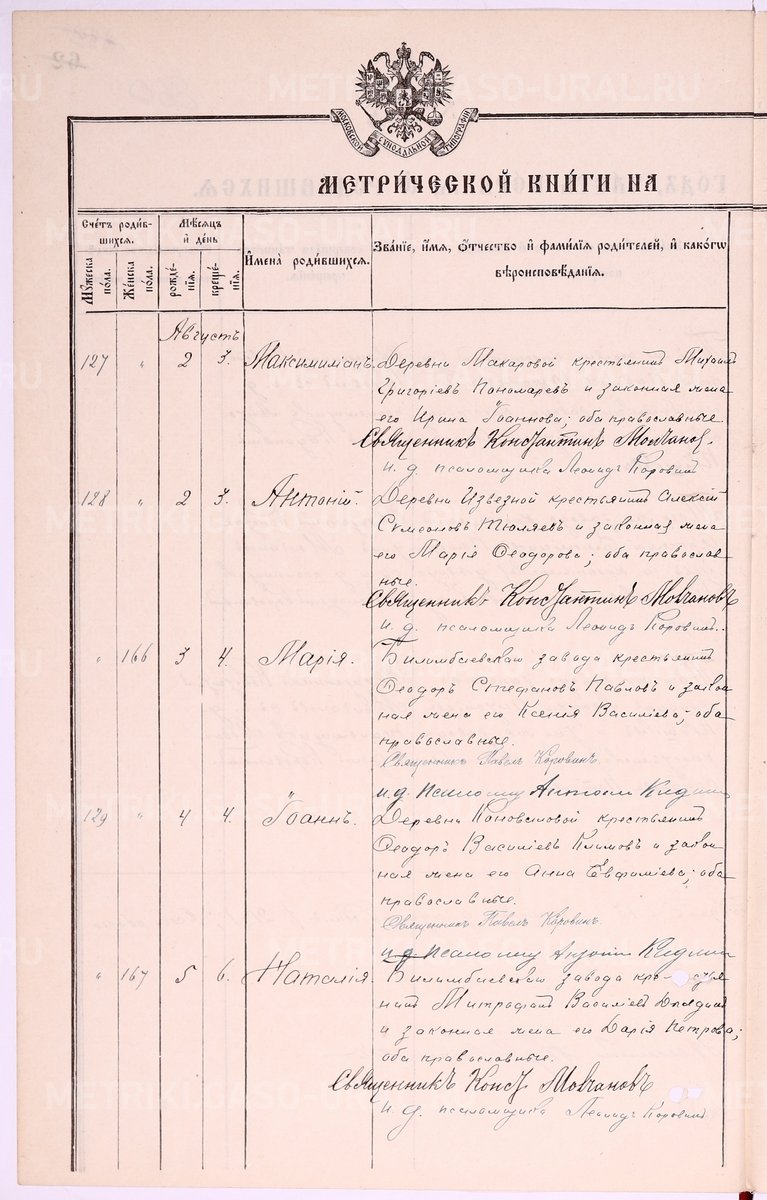 МОСКОВСКОЙ СѴНОДАЛЬНОЙ ТИПОГРАФІИ
МЕТРИ́ЧЕСКОЙ КНИ́ГИ НА
Сче́тъ роди́в-
шихся.
Мѣ́сяцъ
и҆ де́нь
Мꙋ́жеска по́ла.
Же́нска по́ла.
рожде́-
нїѧ.
креще́-
нїѧ.
И҆мена̀ роди́вшихся.
Зва́нїе, и҆́мѧ, ѻ҆́тчество и҆ фами́лїѧ роди́телей, и҆ како́гѡ
вѣроисповѣ́данїѧ.
Августъ
127 " 2 3. Максимиліанъ. Деревни Макаровой крестьянинъ Михаилъ
Григоріевъ Пономаревъ и законная жена
его Ирина Іоаннова; оба православные.
Священникъ Константинъ Молчанов.
И. д. псаломщика Леонидъ Коровинъ
128 " 2 3. Антоній. Деревни Извезной крестьянинъ Алексій
Сумеоновъ Тюляевъ и законная жена
его Марія Ѳеодорова; оба православ-
ные.
Священникъ Константинъ Молчановъ
И. д. псаломщика Леонидъ Коровинъ.
" 166 3 4. Марія. Билимбаевскаго завода крестьянинъ
Ѳеодоръ Стефановъ Павловъ и закон-
ная жена его Ксенія Василіева; оба
православные.
Священникъ Павелъ Коровинъ
И. д. Псаломщ Антоній
129 " 4 4. Іоаннъ. Деревни Коноваловой крестьянинъ
Ѳеодоръ Василіевъ Климовъ и закон-
ная жена его Анна Евфиміева; оба
православные.
Священникъ Павелъ Коровинъ
И. д. Псаломщ Антоній
" 167 5 6. Наталія. Билимбаевскаго завода крестья-
нинъ Митрофанъ Василіевъ
и законная жена его Дарія Петрова;
оба православные.
Священникъ Конст. Молчановъ
И. д. псаломщика Леонидъ Коровинъ